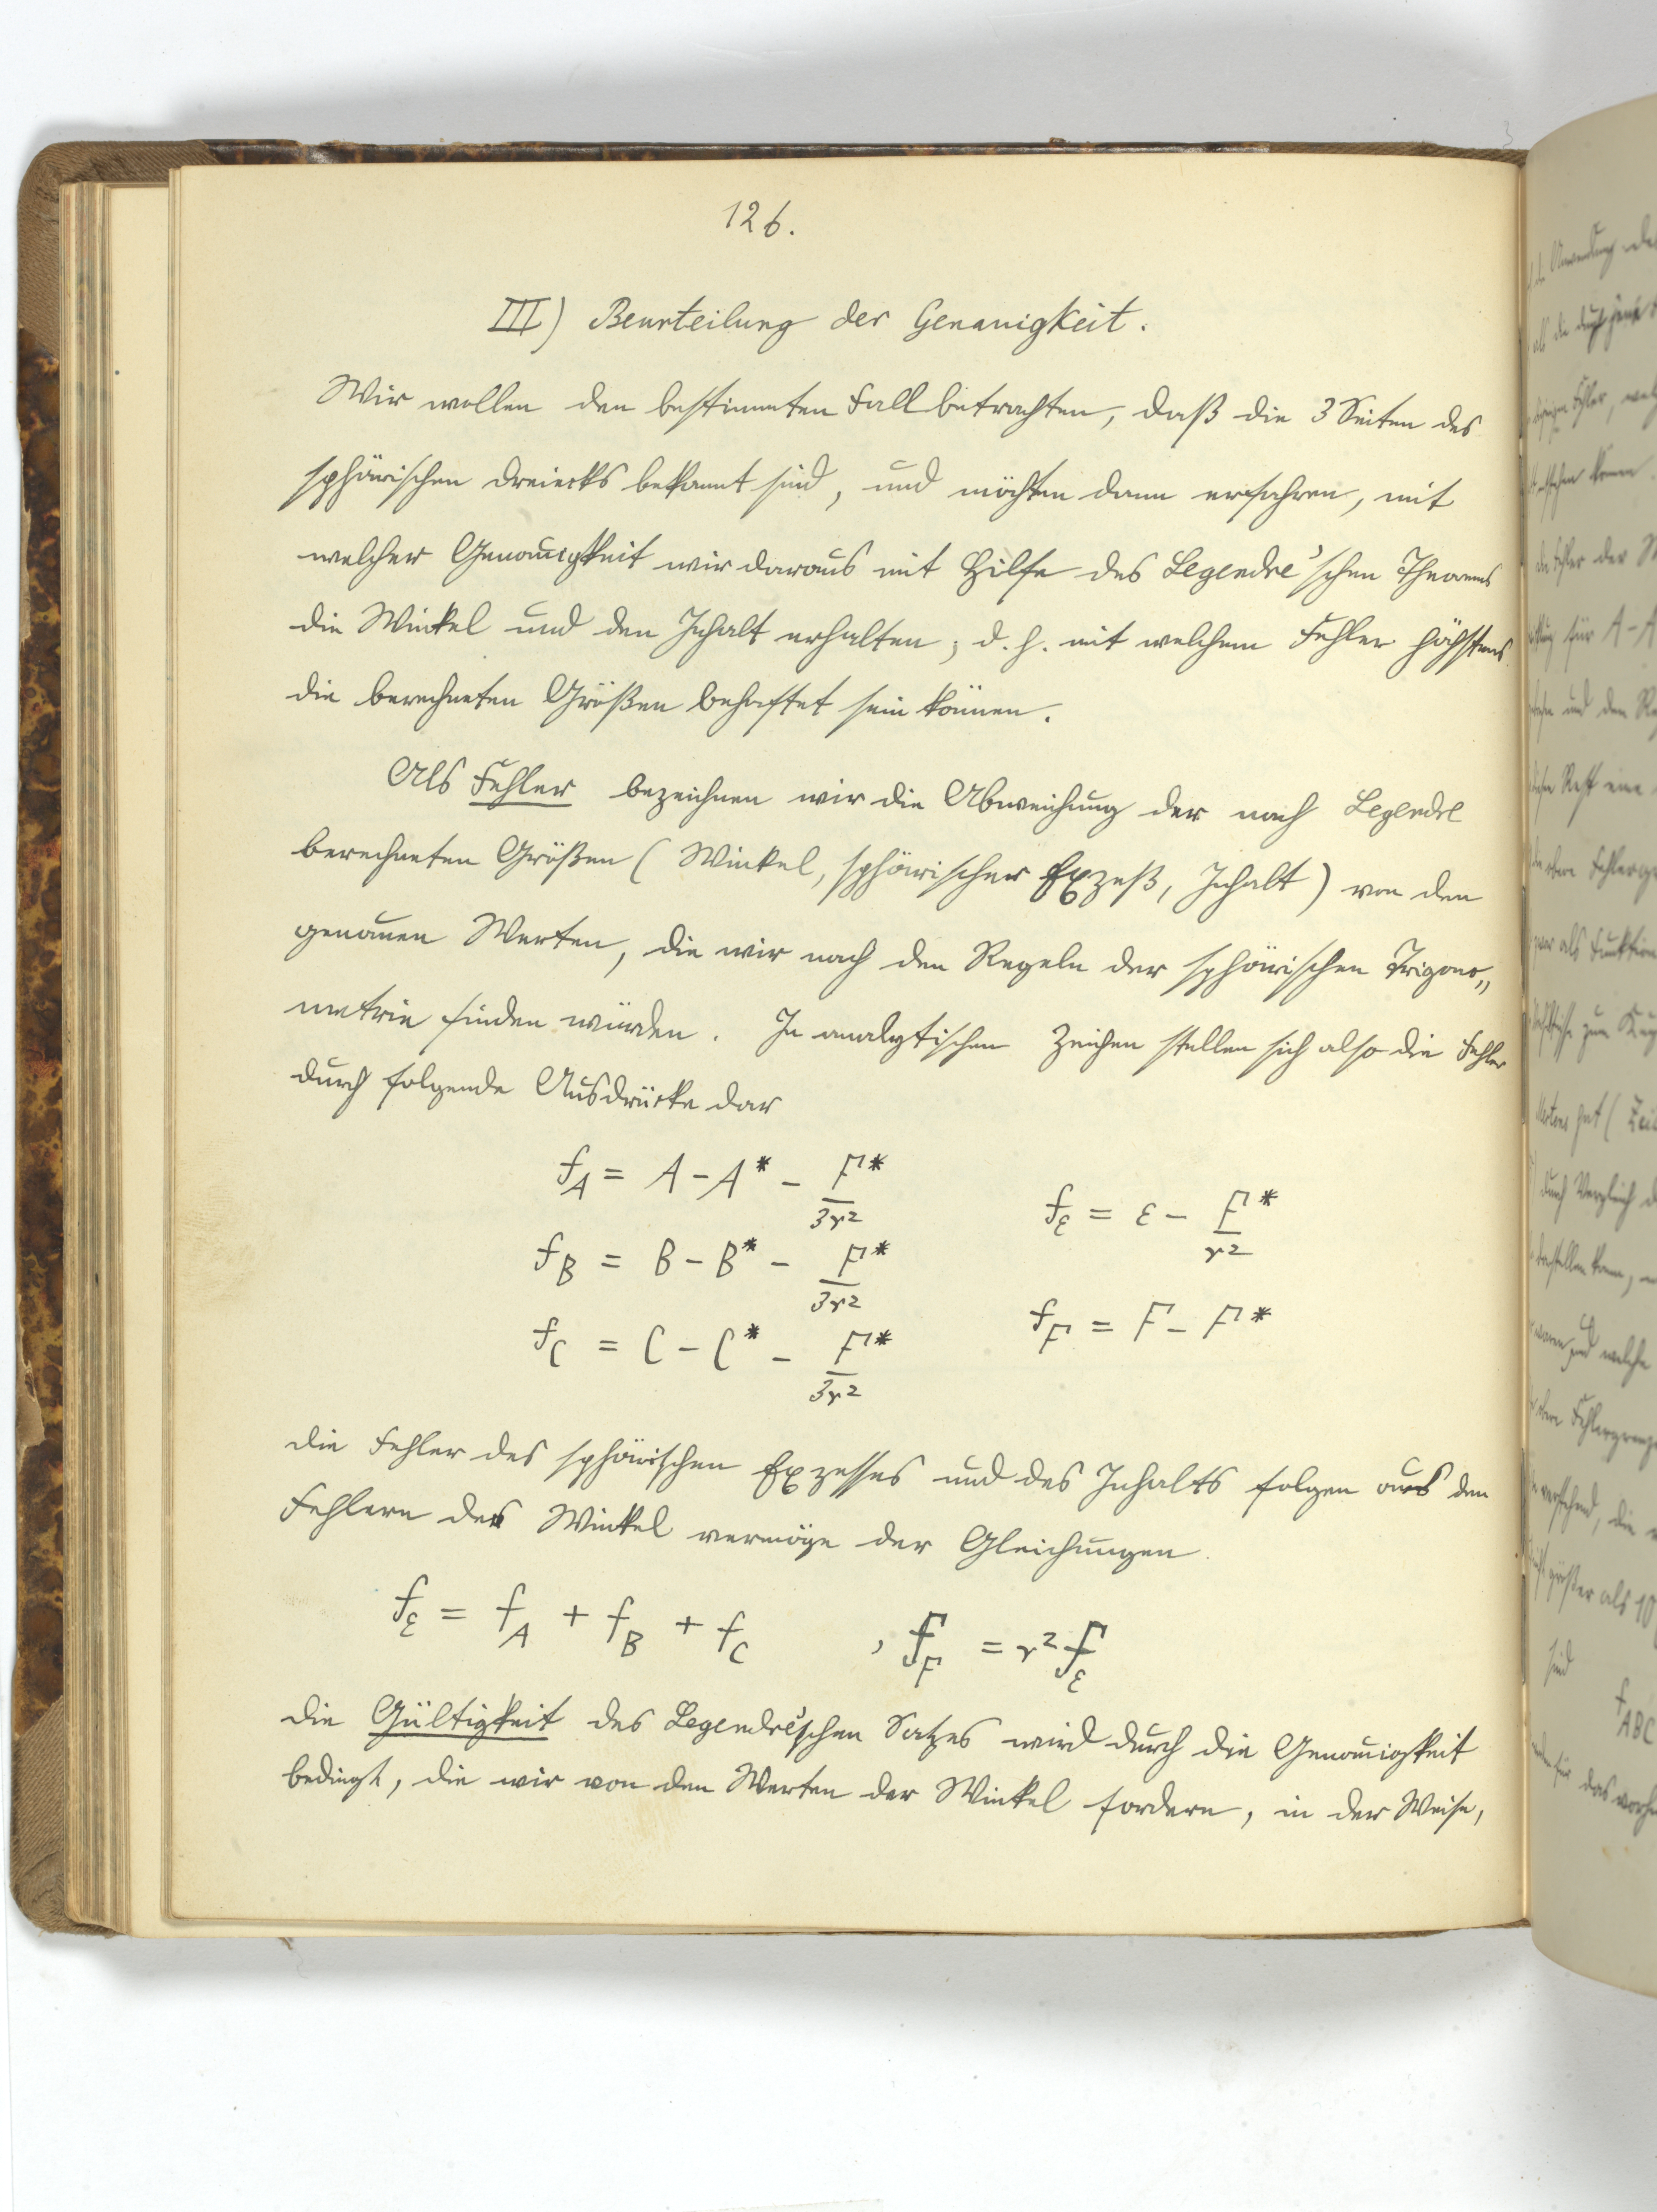 126.
III) Beurteilung der Genauigkeit.
Wir wollen den bestimmten Fall betrachten, daß die 3 Seiten des
sphärischen Dreiecks bekannt sind, und möchten dann erfahren, mit
welcher Genauigkeit wir daraus mit Hilfe des Legendre'schen Theorems
die Winkel und den Inhalt erhalten, d. h. mit welchem Fehler höchstens
die berechneten Größen behaftet sein können.
Als Fehler bezeichnen wir die Abweichung der nach Legendre
berechneten Größen (Winkel, sphärischer Exzeß, Inhalt) von den
genauen Werten, die wir nach den Regeln der sphärischen Trigono„
metrie finden würden. In analytischen Zeichen stellen sich also die Fehler
durch folgende Ausdrücke dar
f_A = A - A* - F*/3r²
f_ε = ε - F*/r²
f_B = B - B* - F*/3r²
f_F = F - F*
f_C = C - C* - F*/3r²
die Fehler des sphärischen Exzesses und des Inhalts folgen aus den
Fehlern der Winkel vermöge der Gleichungen
f_ε = f_A + f_B + f_C , f_F = r² f_ε
die Gültigkeit des Legendre'schen Satzes wird durch die Genauigkeit
bedingt, die wir von den Werten der Winkel fordern, in der Weise,